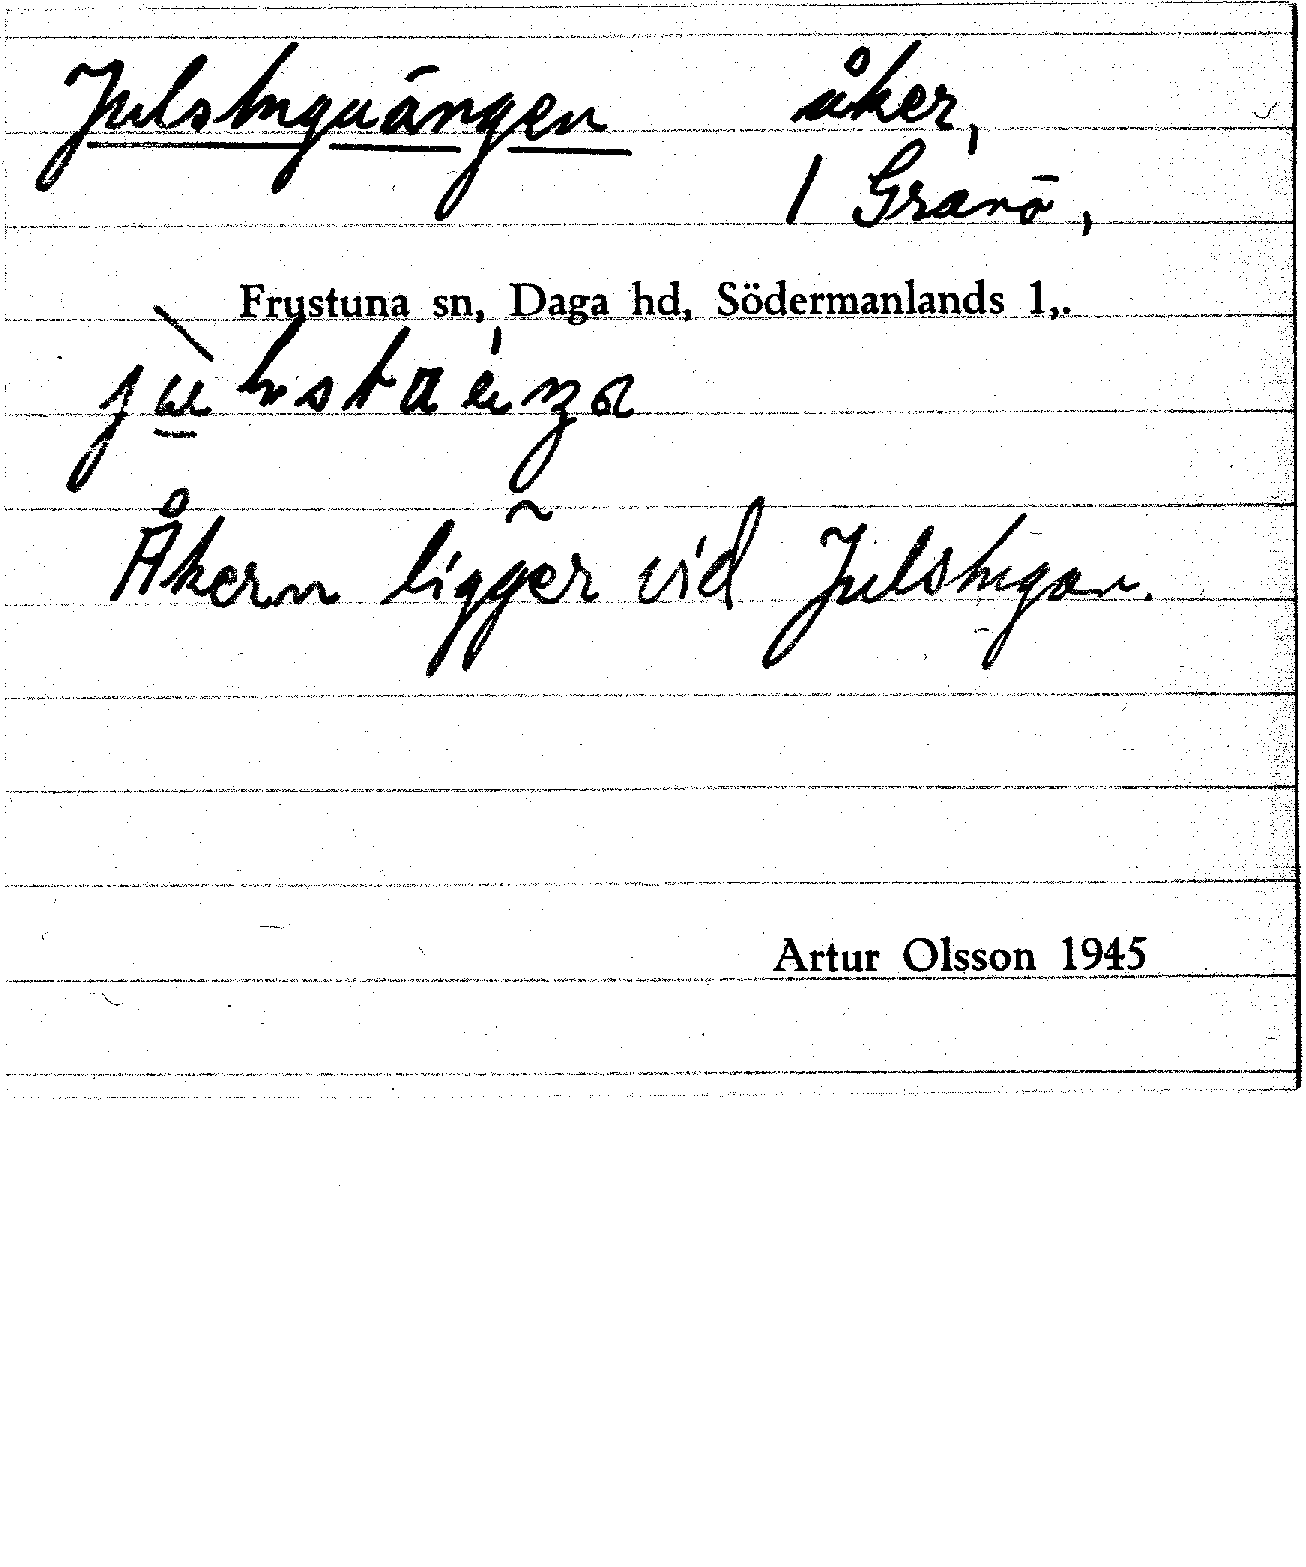 Julstuguängen åker,
1 Granö,
Frustuna sn, Daga hd, Södermanlands l,.
Åkern ligger vid Julstugan.
Artur Olsson 1945